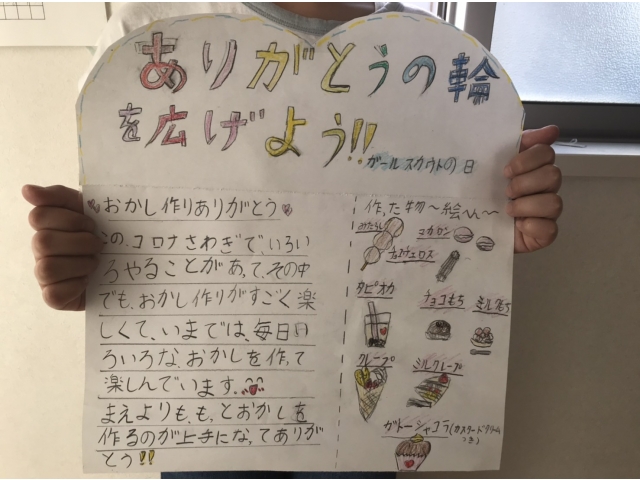 ありがとうの輪
を広げよう!!
ガールスカウトの日
おかし作りありがとう
この、コロナさわぎで、いろい
ろやることがあって、その中
でも、おかし作りがすごく楽
しくて、いまでは、毎日い
ろいろな、おかしを作って
楽しんでいます。
まえよりも、もっとおかしを
作るのが上手になってありが
とう!!
作った物〜絵へん〜
みたらし
マカロン
チュロス
タピオカ
チョコもち
ミルクもち
クレープ
ミルクレープ
ガトーショコラ(カスタードクリーム
つき)